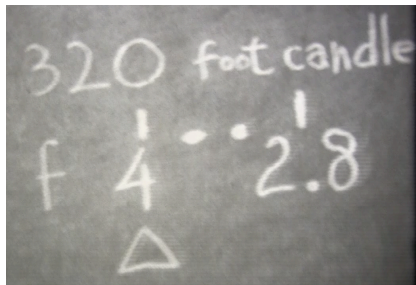 320 foot candle
f 4 2.8